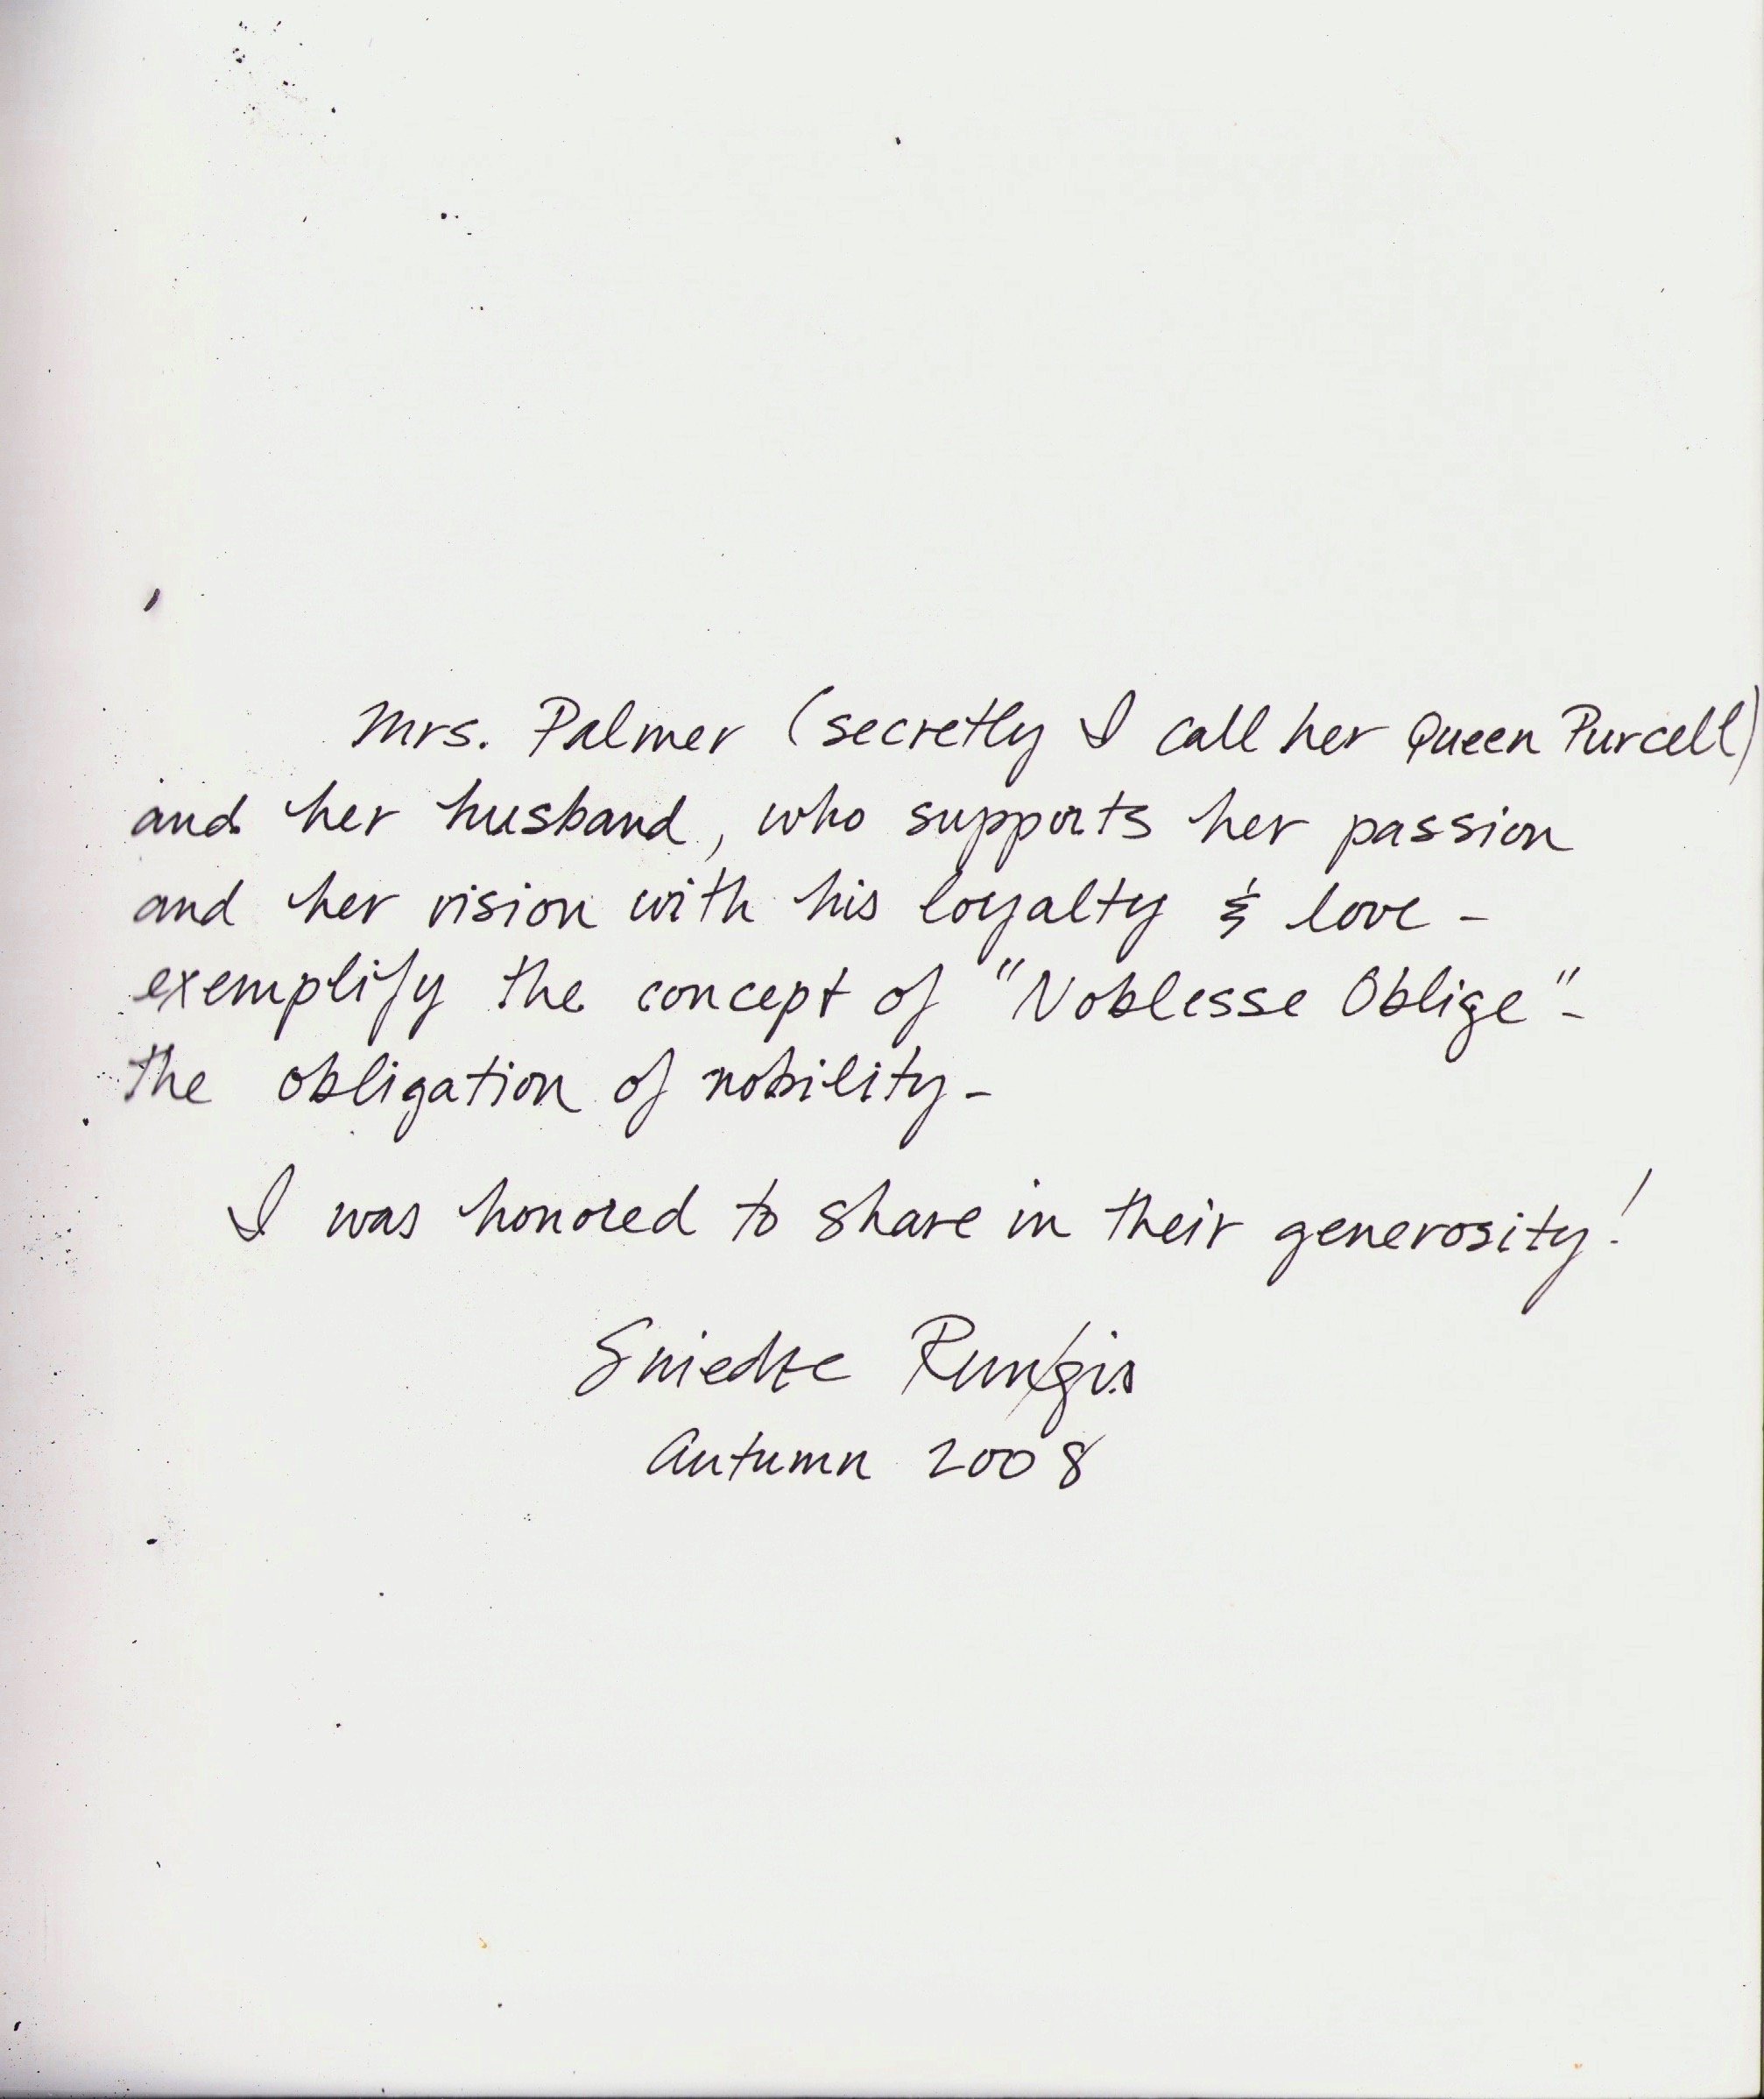 Mrs. Palmer (secretly I call her Queen Purcell)
and her husband, who supports her passion
and her vision with his loyalty & love -
exemplify the concept of "Noblesse Oblige" -
the obligation of nobility -
I was honored to share in their generosity!
Autumn 2008